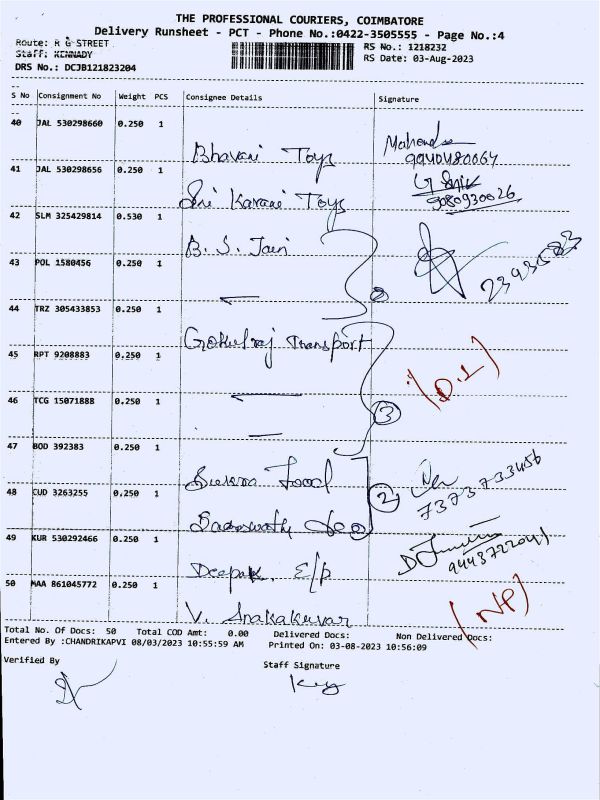 THE PROFESSIONAL COURIERS, COIMBATORE
Delivery Runsheet - PCT - Phone No.:0422-3505555 - Page No.:4
Route: R G STREET
Staff: KENNADY
DRS No.: DCJB121823204
RS No.: 1218232
RS Date: 03-Aug-2023
S No Consignment No Weight PCS Consignee Details Signature
40 JAL 530298660 0.250 1 Bhavani Toys
9940480067
41 JAL 530298656 0.250 1 Sri Karani Toys
9080930026
42 SLM 325429814 0.530 1 B. S. Jain
43 POL 1580456 0.250 1
44 TRZ 305433853 0.250 1 Gokulraj Transport
45 RPT 9208883 0.250 1 (D.L)
46 TCG 15071888 0.250 1 3
47 BOD 392383 0.250 1 Food
2
7373733456
48 CUD 3263255 0.250 1
49 KUR 530292466 0.250 1 Deepak. E/P
9443722041
50 MAA 861045772 0.250 1 V.
(NP)
Total No. Of Docs: 50 Total COD Amt: 0.00 Delivered Docs: Non Delivered Docs:
Entered By :CHANDRIKAPVI 08/03/2023 10:55:59 AM Printed On: 03-08-2023 10:56:09
Verified By Staff Signature